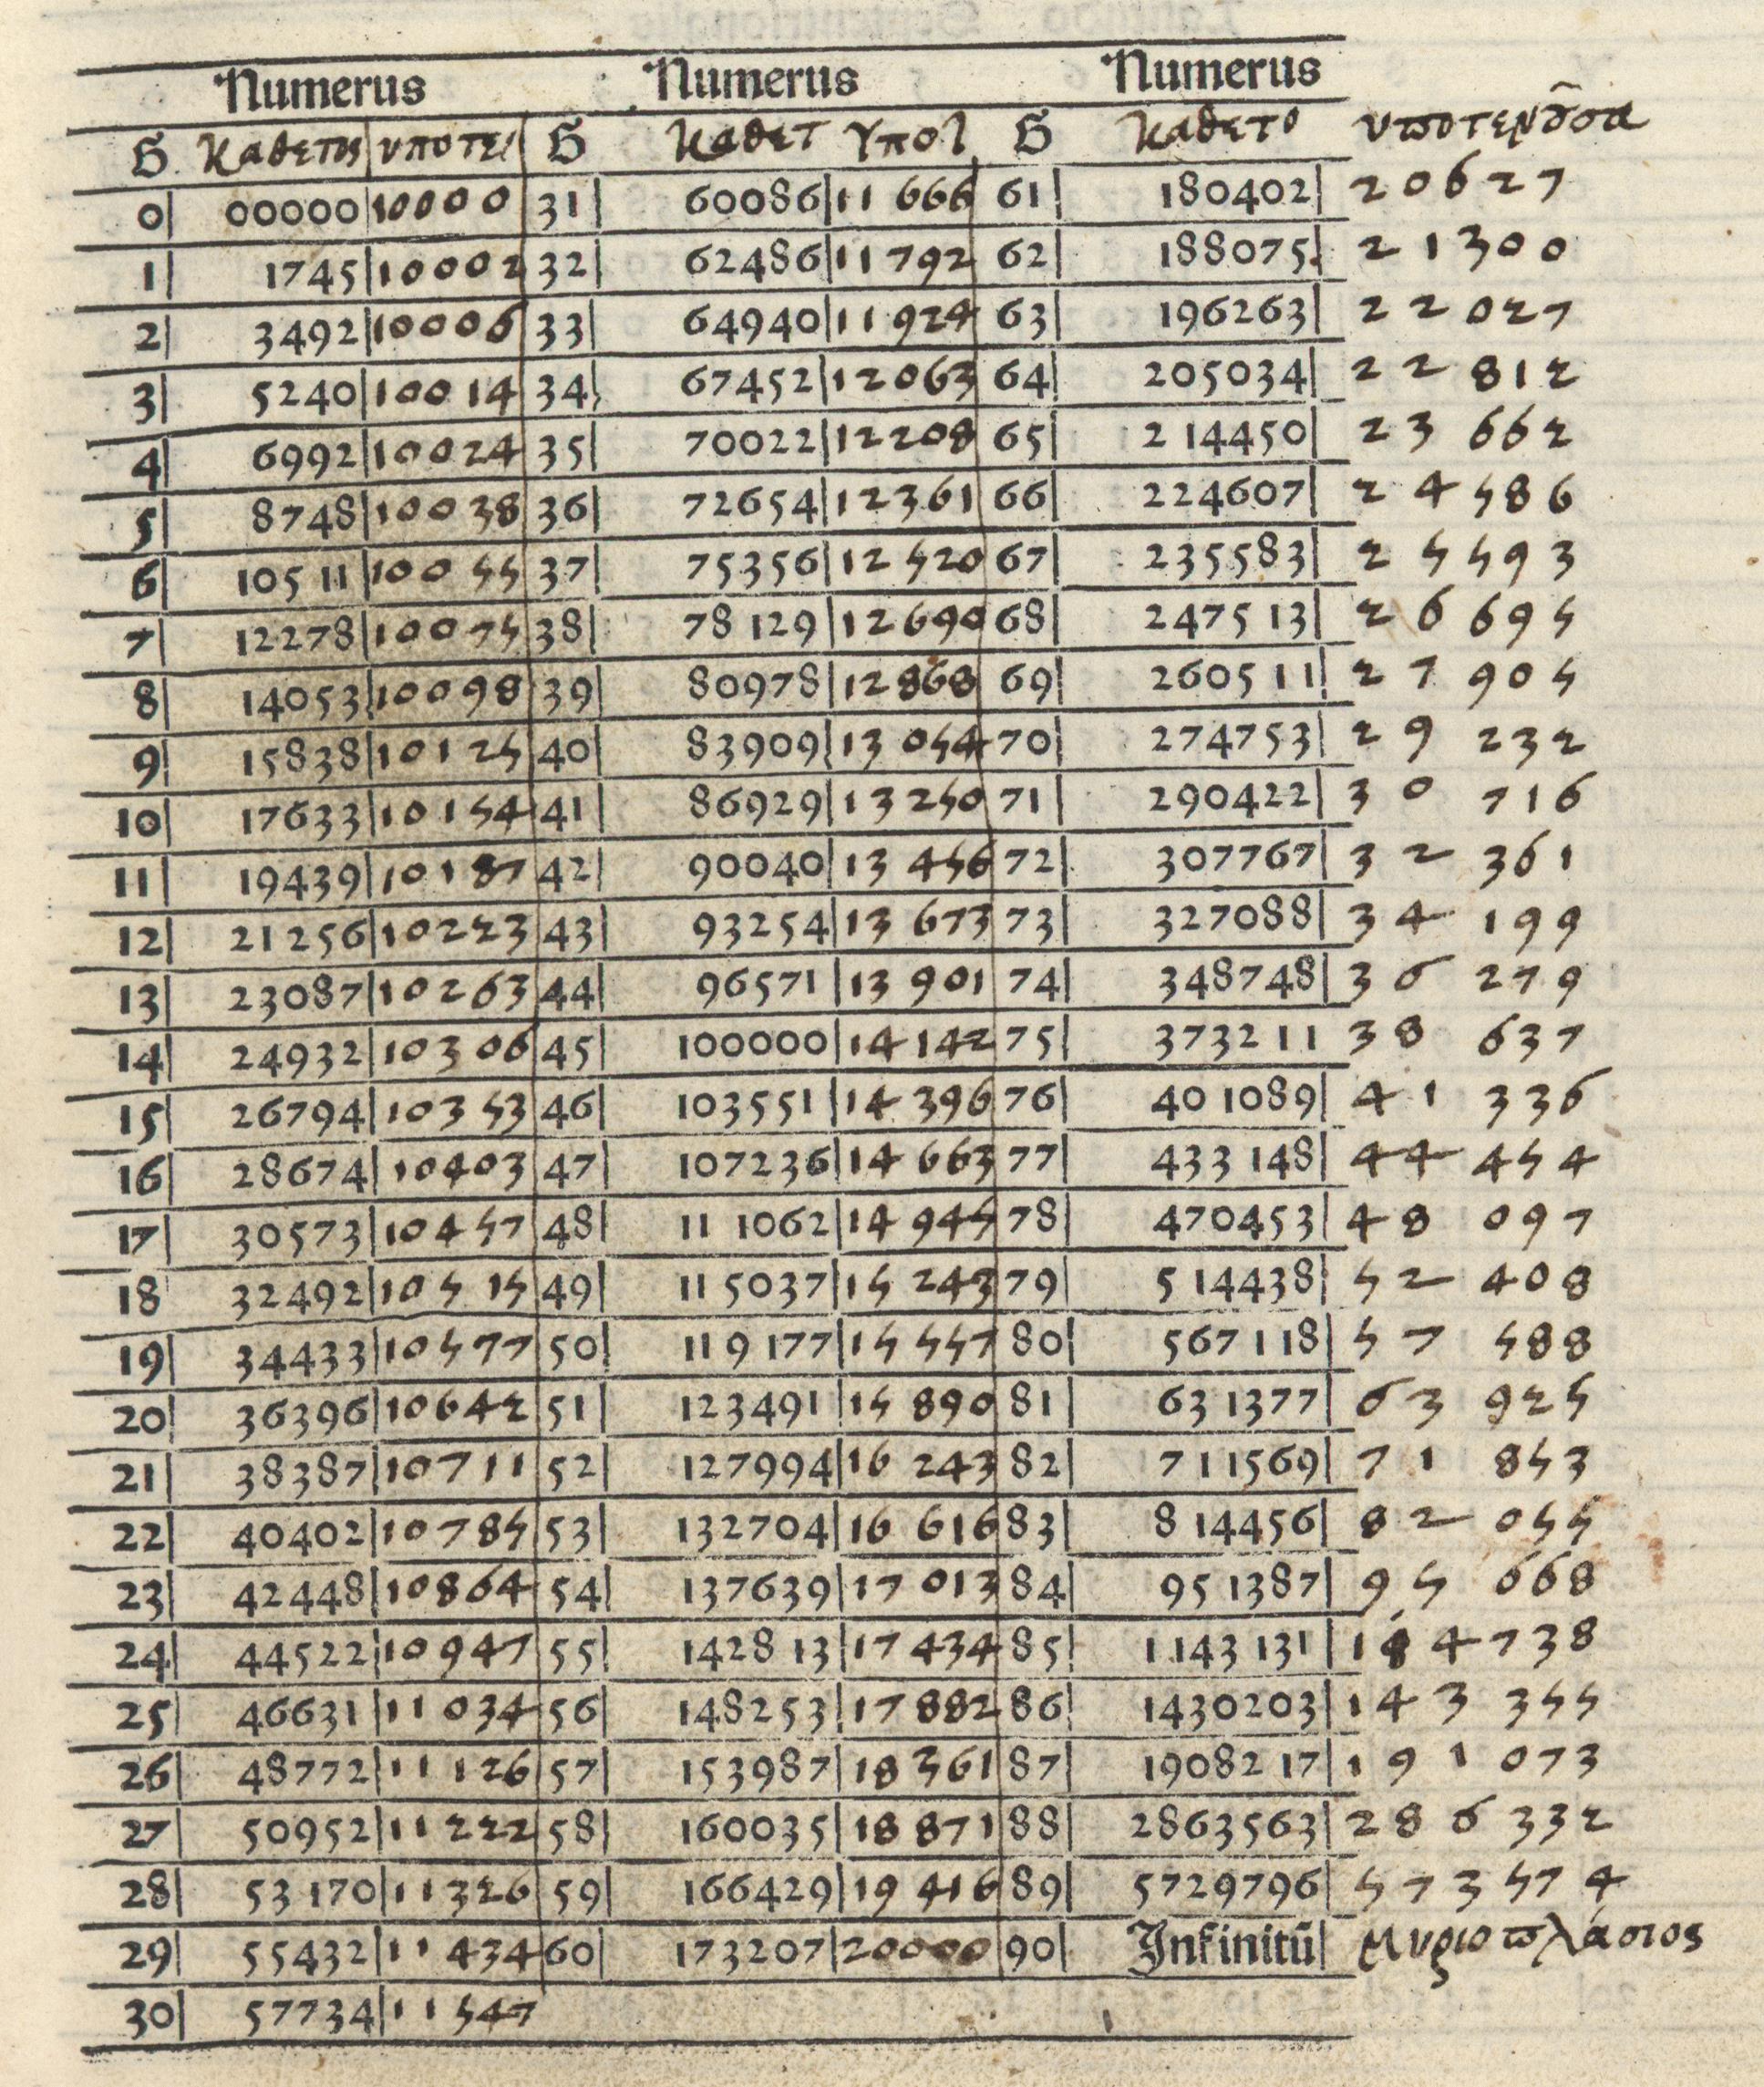 Numerus Numerus Numerus
G καθετος υποτε G καθετ Υποτ G καθετο υποτενȣσα
0 00000 10000 31 60086 11 666 61 180402 20627
1 1745 10002 32 62486 11792 62 188075 21300
2 3492 10006 33 64940 11924 63 196263 22027
3 5240 10014 34 67452 12063 64 205034 22 812
4 6992 10024 35 70022 12208 65 2 14450 23 662
5 8748 10038 36 72654 12361 66 224607 24586
6 105 11 10055 37 75356 12 520 67 235583 25593
7 12278 10075 38 78 129 12690 68 2475 13 26695
8 14053 10098 39 80978 12868 69 2605 11 27 905
9 15838 10125 40 83909 13 054 70 274753 29 232
10 17633 10154 41 86929 13250 71 290422 30 716
11 19439 10187 42 90040 13 456 72 307767 32 361
12 21256 10223 43 93254 13 673 73 327088 34 199
13 23087 10263 44 96571 13 901 74 348748 36 279
14 24932 10306 45 100000 14142 75 3732 11 38 637
15 26794 10353 46 103551 14 396 76 40 1089 41 336
16 28674 10403 47 107236 14 663 77 433 148 44 454
17 30573 10457 48 11 1062 14 945 78 470453 48 097
18 32492 10515 49 11 5037 15 243 79 5 14438 52 408
19 34433 10577 50 119 177 15 557 80 567 118 57 588
20 36396 10642 51 123491 15 890 81 63 1377 63 925
21 38387 10711 52 127994 16 243 82 711569 71 853
22 40402 10785 53 132704 16 616 83 8 14456 82 055
23 42448 10864 54 137639 17 013 84 95 1387 95 668
24 44522 10947 55 1428 13 17 434 85 1143 131 114738
25 46631 11 034 56 148253 17 882 86 1430203 143 355
26 48772 11 126 57 153987 18 361 87 19082 17 191 073
27 50952 11 222 58 160035 18 871 88 2863563 286 332
28 53 170 11326 59 166429 19 416 89 5729796 573 574
29 55432 11 434 60 173207 20000 90 Infinitū μυριοπλάσιος
30 57734 11547